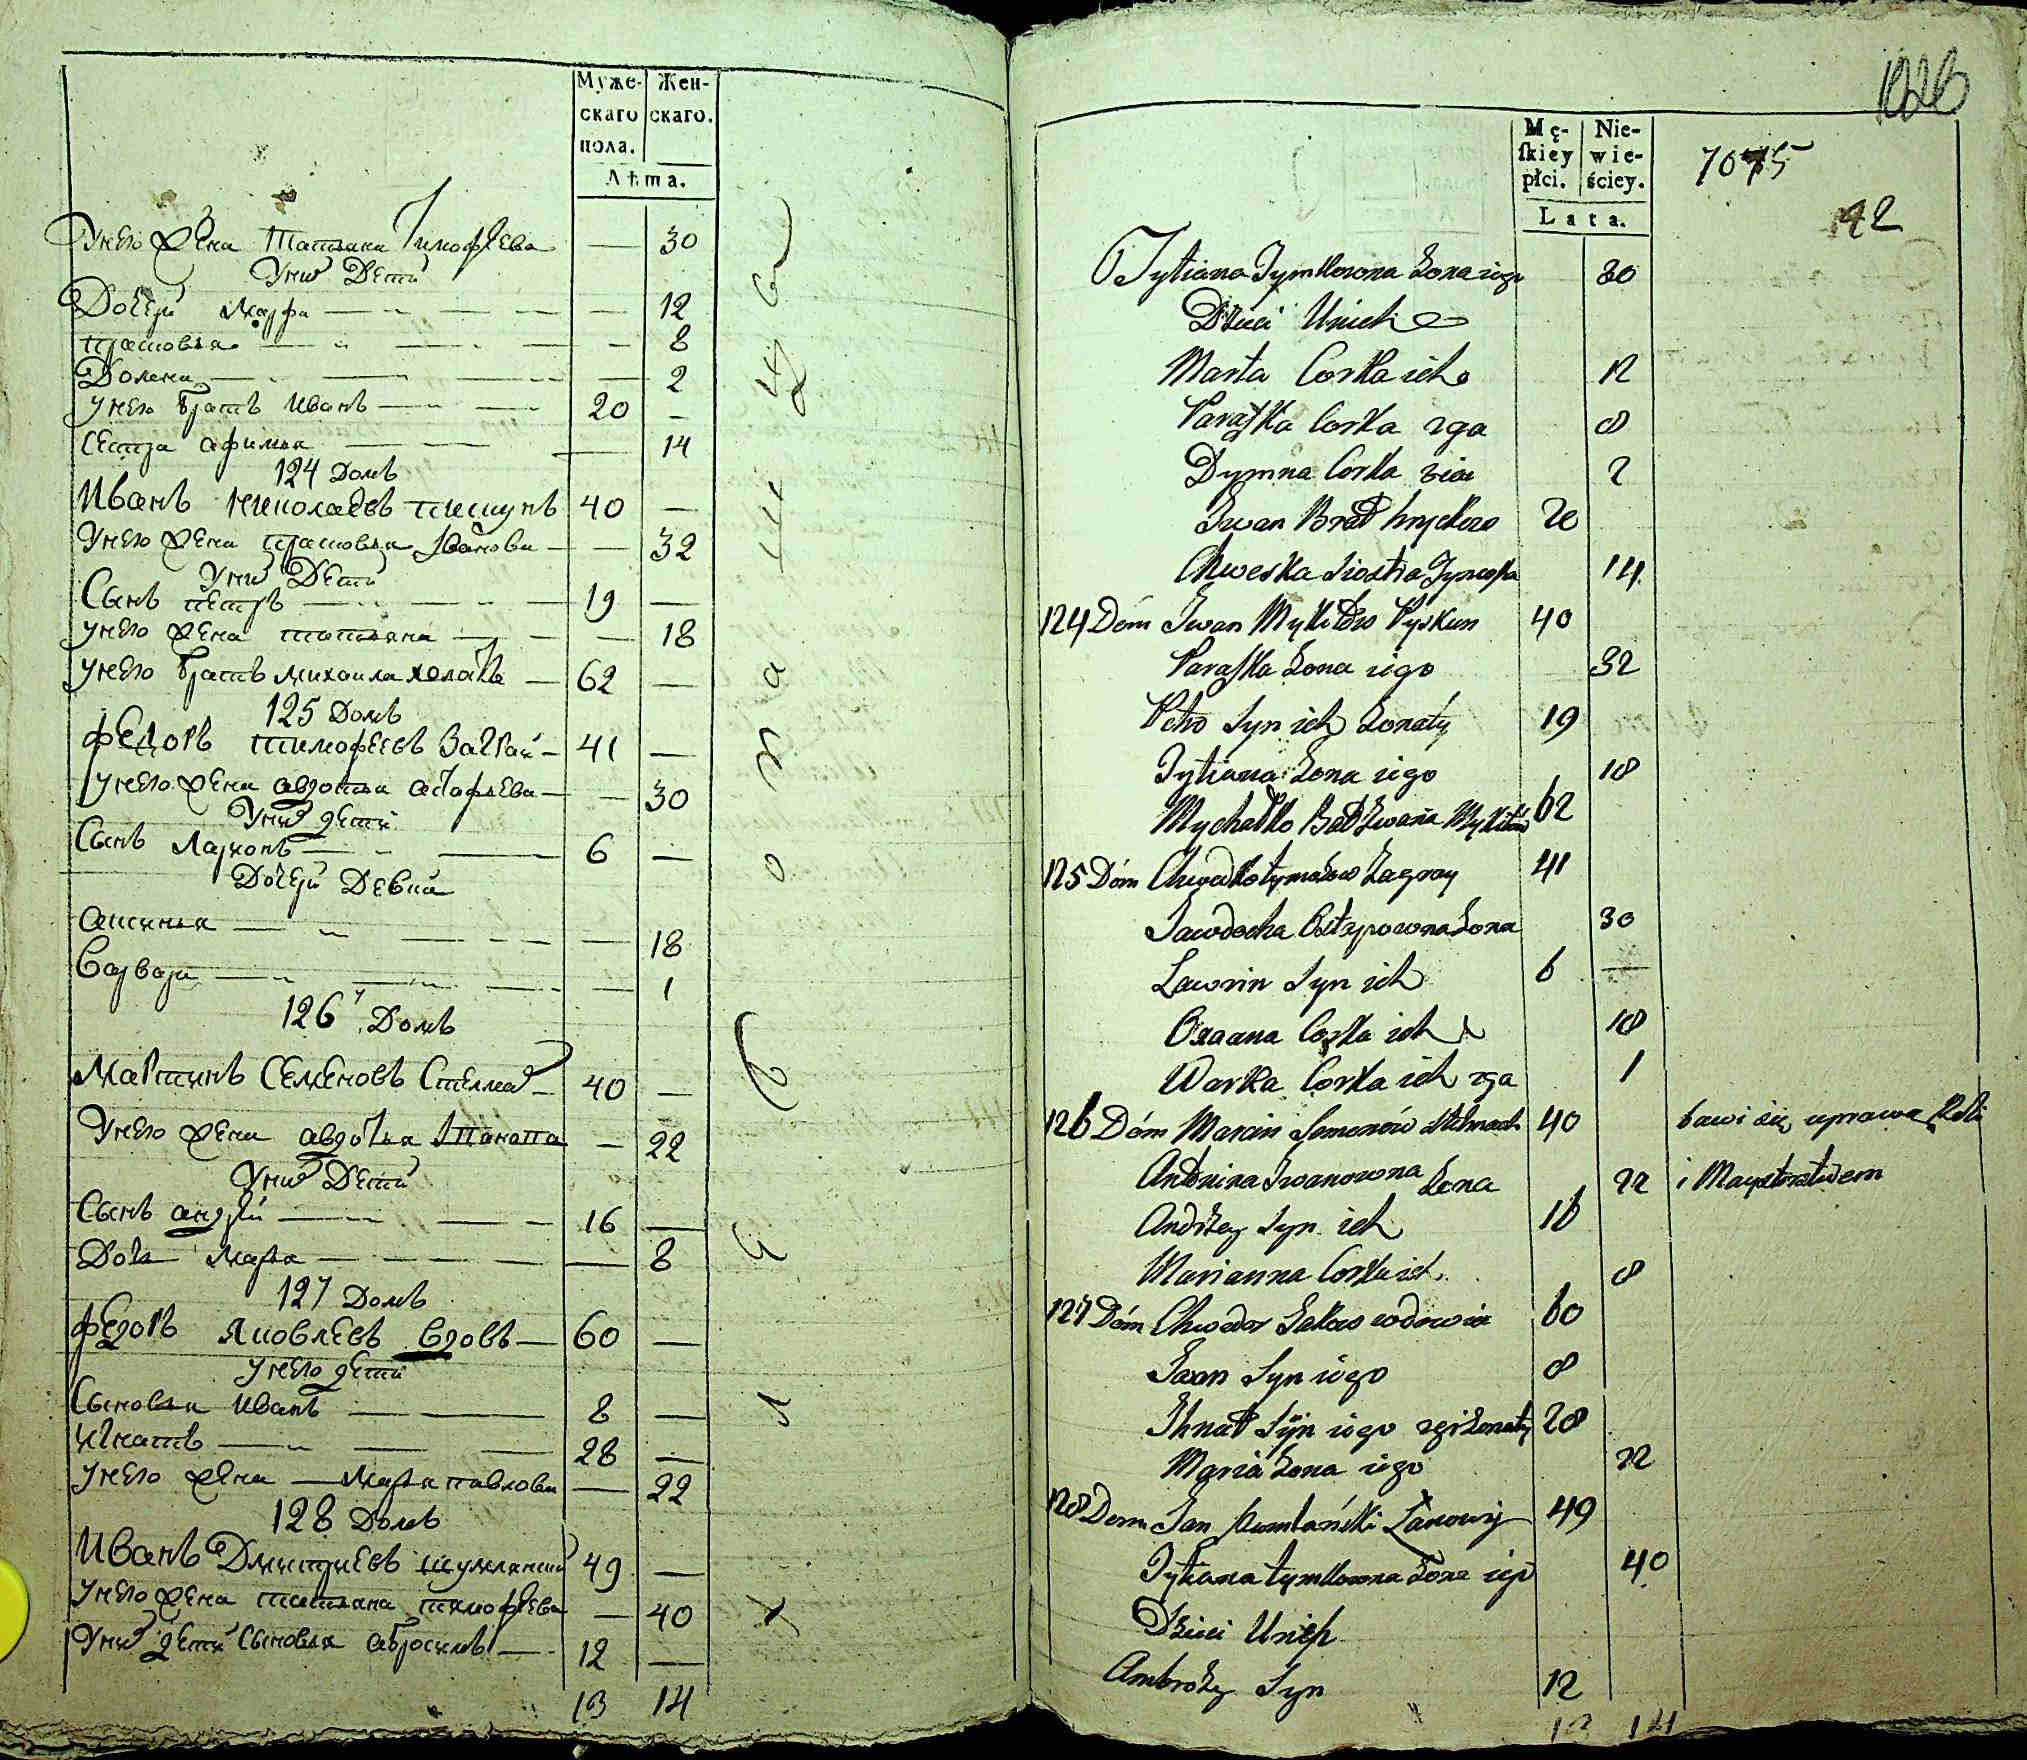 Муже-
скаго
пола.
Жен-
скаго.
Лѣта.
У него жена Татьяна Тимофѣева — 30
У нихъ Дети
Дочери Марфа — 12
Прасковья — 8
Домна — 2
У него братъ Иванъ — 20 —
Сестра Афимья — 14
124 Домъ
Иванъ Николаевъ Пискунъ 40 —
У него жена Прасковья Иванова — 32
У нихъ Дети
Сынъ Петръ — 19 —
У него жена Татьяна — 18
У него братъ Михаила — 62 —
125 Домъ
Федоръ Тимофеевъ Заграй — 41 —
У него жена Авдотья Астафьева — 30
У нихъ дети
Сынъ — 6 —
Дочери Девки
Аксинья — 18
Варвара — 1
126 Домъ
Мартинъ Семеновъ Стелмах — 40 —
У него жена Авдотья — 22
У нихъ Дети
Сынъ Андрей — 16 —
Дочь Марья — 8
127 Домъ
Федоръ Яковлевъ вдовъ — 60 —
У него дети
Сыновья Иванъ — 8 —
Игнатъ — 28 —
У него жена — Марья Павлова — 22
128 Домъ
Иванъ Дмитриевъ Шумлянский 49 —
У него жена Татьяна Тимофѣева — 40
У нихъ дети Сыновья Абросимъ — 12 —
13 14
Mę-
ſkiey
płci.
Nie-
wie-
ściey.
Lata.
7075
42
Tytiana Tymkowna Żona iego 30
Dzieci Unich
Marta Corka ich 12
Paraſka Corka 2ga 8
Dymna Corka 3cia 2
Iwan Brat Hryckow 20
Chweska Siostra 14
124 Dóm Iwan Mykitow Pyskun 40
Paraſka Żona iego 32
Petro Syn ich Żonaty 19
Tytiana Żona iego 18
Mychałko Brat Iwana Mykitow 62
125 Dóm Chwedko Tymkow Zagray 41
Jawdocha Ostapowna Żona 30
Lawrin Syn ich 6 —
Oxana Corka ich 18
Warka Corka ich 2ga 1
126 Dóm Marcin Semenów Stelmach 40 bawi się uprawą Roli
Antonina Iwanowna Żona 22 i Maysterstwem
Andrzey Syn ich 16
Marianna Corka ich 8
127 Dóm Chwedor Jakow wdowiec 60
Iwan Syn iego 8
Ihnat Syn iego 2gi Żonaty 28
Maria Żona iego 22
128 Dom Jan Szumlański Łanowy 49
Tytiana Tymkowna Żona iego 40
Dzieci Unich
Ambroży Syn 12
13 14